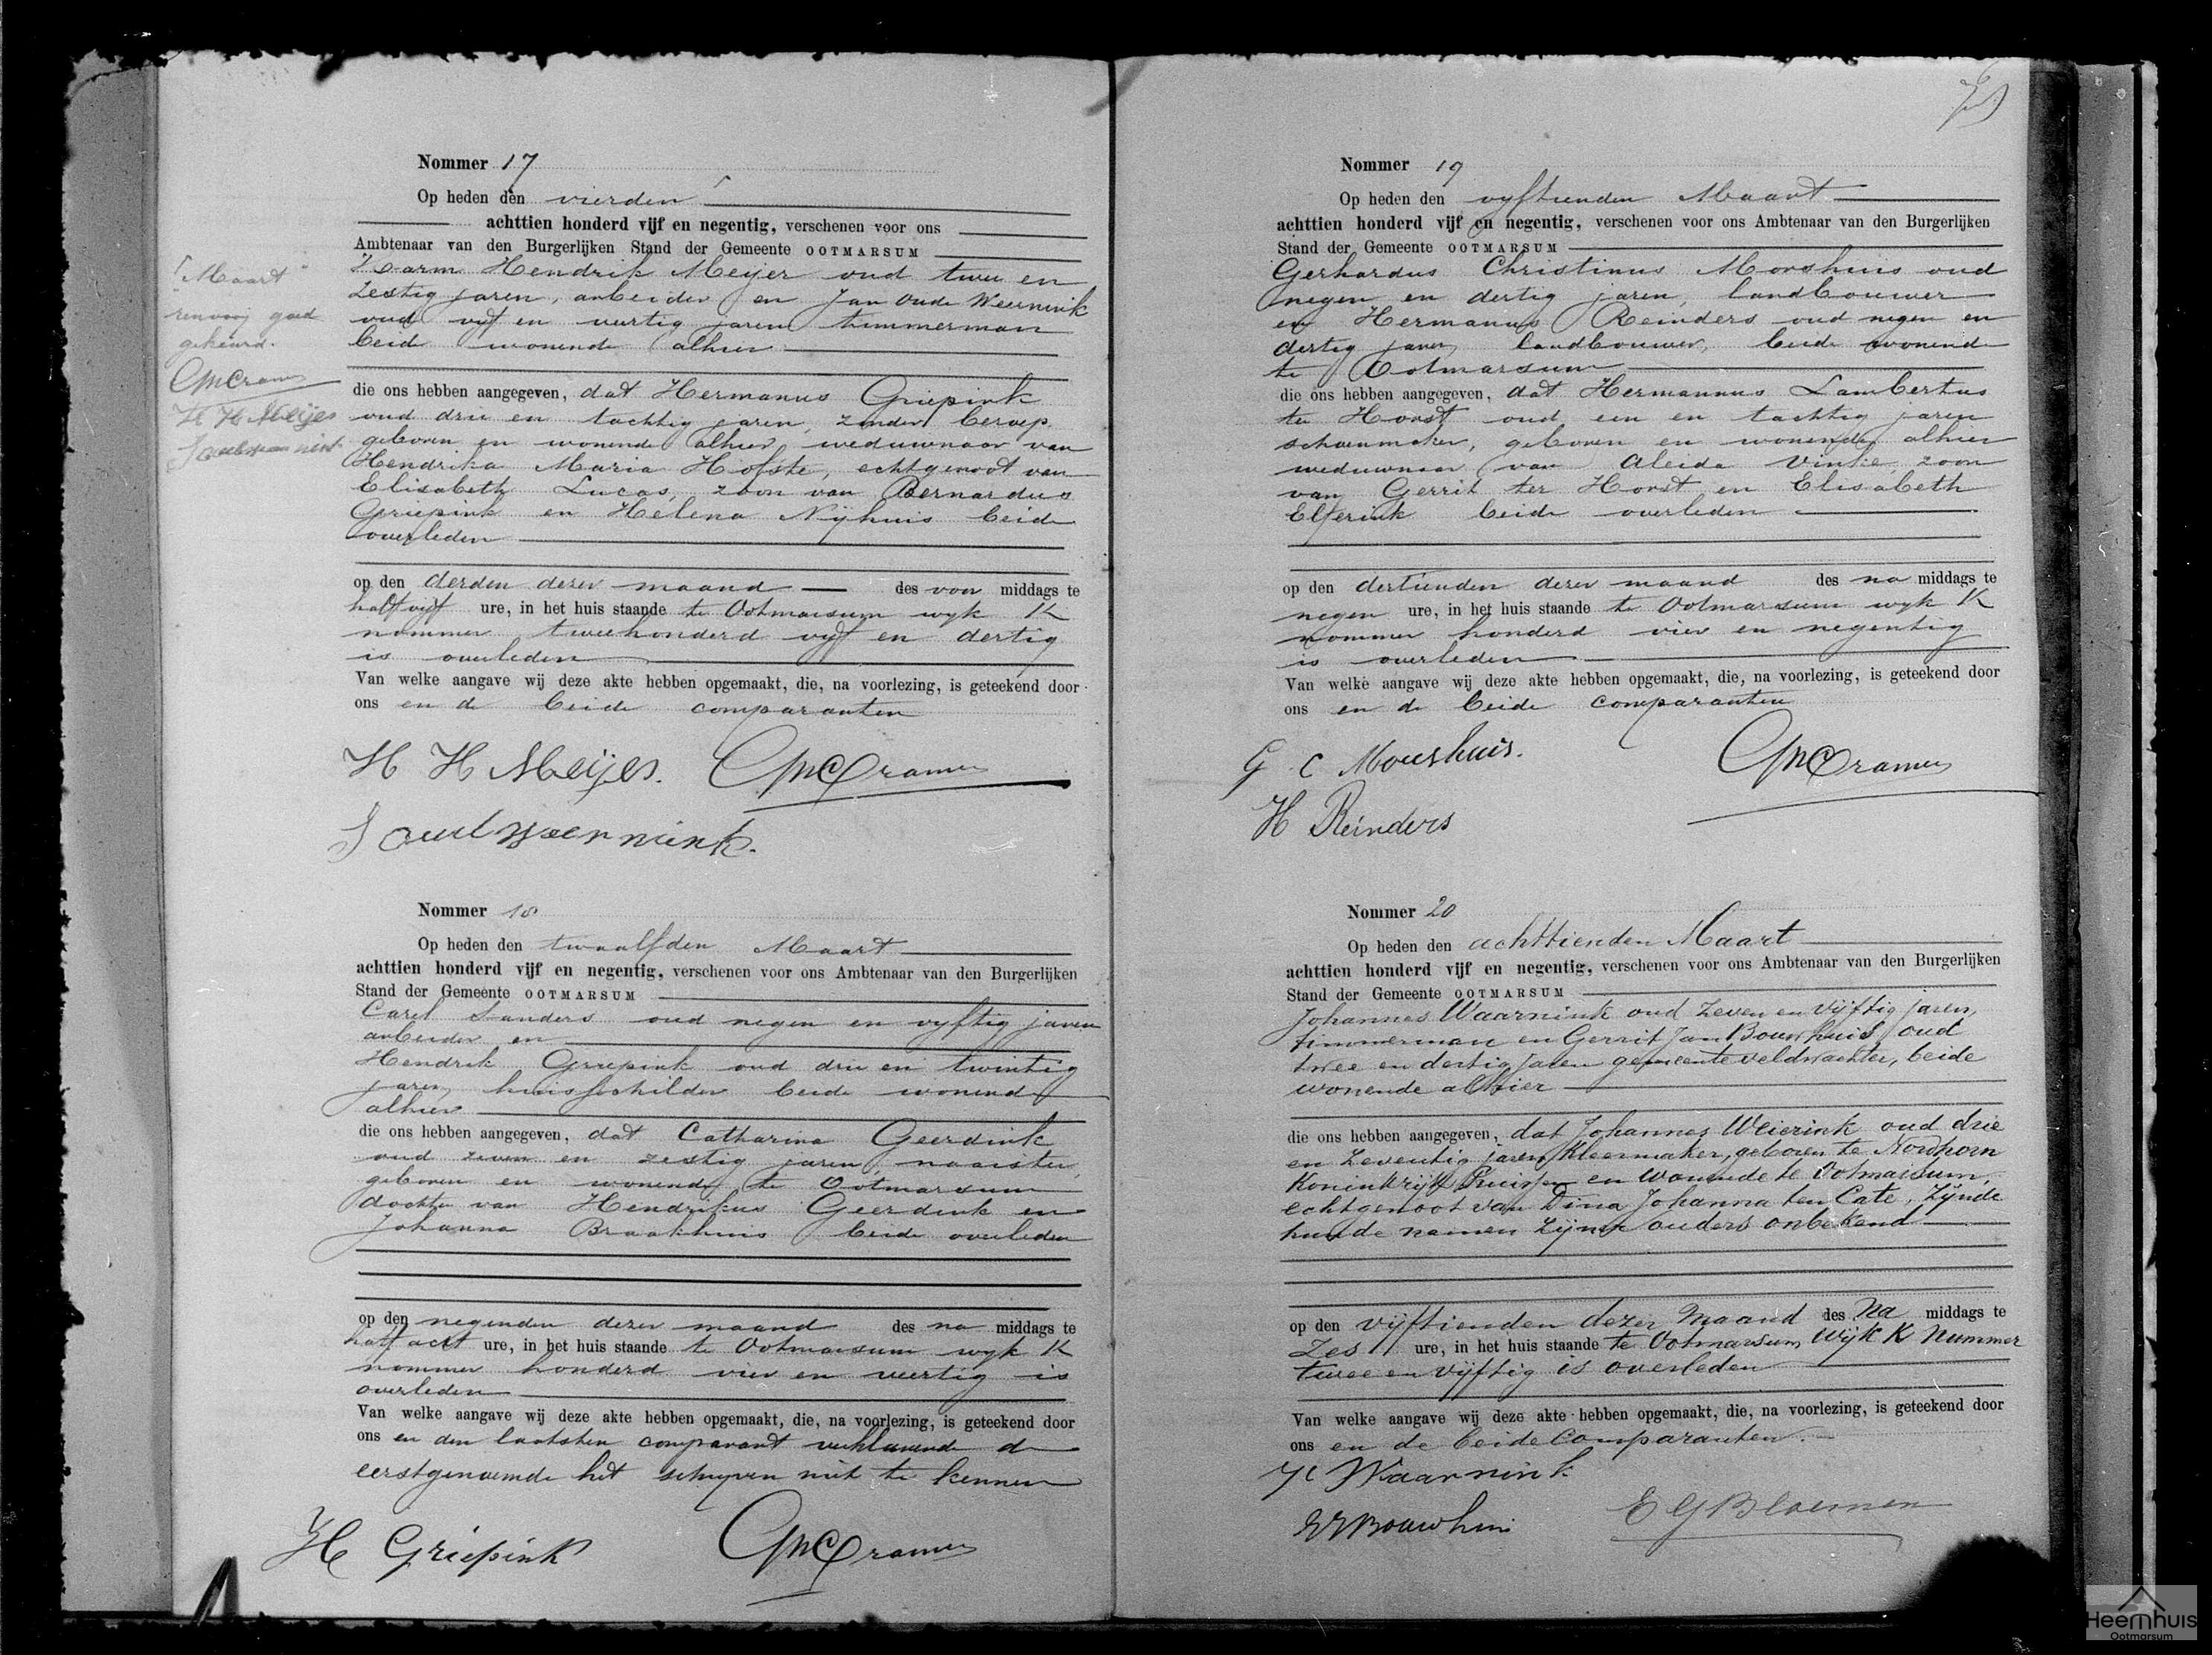 Nommer 17
Op heden den vierden ⌈
achttien honderd vijf en negentig, verschenen voor ons
Ambtenaar van den Burgerlijken Stand der Gemeente OOTMARSUM
Harm Hendrik Meijer oud twee en
zestig jaren, arbeider en Jan Oude Weernink
oud vyf en veertig jaren timmerman
beide wonende alhier
⌈Maart"
renvooij goed
gekeurd.
H H Meijer
die ons hebben aangegeven, dat Hermanus Griepink
oud drie en tachtig jaren, zonder beroep
geboren en wonende alhier, weduwnaar van
Hendrika Maria Hofste, echtgenoot van
Elisabeth Lucas, zoon van Bernardus
Griepink en Helena Nijhuis beide
overleden
op den derden dezer maand des voor middags te
half vyf ure, in het huis staande te Ootmarsum wyk K
nommer tweehonderd vyf en dertig
is overleden
Van welke aangave wij deze akte hebben opgemaakt, die, na voorlezing, is geteekend door
ons en de beide comparanten
H H Meijer. Cramer
J oude weernink.
Nommer 18
Op heden den twaalfden Maart
achttien honderd vijf en negentig, verschenen voor ons Ambtenaar van den Burgerlijken
Stand der Gemeente OOTMARSUM
Carel Sanders oud negen en vyftig jaren
arbeider en
Hendrik Griepink oud drie en twintig
jaren, huisschilder beide wonende
alhier
die ons hebben aangegeven, dat Catharina Geerdink
oud zeven en zestig jaren, naaister,
geboren en wonende te Ootmarsum
dochter van Hendrikus Geerdink en
Johanna Braakhuis beide overleden
op den negenden dezer maand des na middags te
half acht ure, in het huis staande te Ootmarsum wyk K
nommer honderd vier en veertig is
overleden
Van welke aangave wij deze akte hebben opgemaakt, die, na voorlezing, is geteekend door
ons en den laatsten comparant verklarende de
eerstgenoemde het schryven niet te kennen
H Griepink Cramer
Nommer 19
Op heden den vyftienden Maart
achttien honderd vijf en negentig, verschenen voor ons Ambtenaar van den Burgerlijken
Stand der Gemeente OOTMARSUM
Gerhardus Christinus Morshuis oud
negen en dertig jaren, landbouwer
en Hermanus Reinders oud negen en
dertig jaren, landbouwer, beide wonende
te Ootmarsum
die ons hebben aangegeven, dat Hermannus Lambertus
ter Horst oud een en tachtig jaren
schoenmaker, geboren en wonende alhier
weduwnaar van Aleida Vinke, zoon
van Gerrit ter Horst en Elisabeth
Elferink beide overleden
op den dertienden dezer maand des na middags te
negen ure, in het huis staande te Ootmarsum wyk K
nommer honderd vier en negentig
is overleden
Van welke aangave wij deze akte hebben opgemaakt, die, na voorlezing, is geteekend door
ons en de beide comparanten
G C Morshuis. Cramer
H Reinders
Nommer 20
Op heden den achttienden Maart
achttien honderd vijf en negentig, verschenen voor ons Ambtenaar van den Burgerlijken
Stand der Gemeente OOTMARSUM
Johannes Waarnink oud Zeven en vijftig jaren,
timmerman en Gerrit Jan Bouwhuis, oud
twee en dertig jaren gemeenteveldwachter, beide
wonende alhier
die ons hebben aangegeven, dat Johannes Weierink oud drie
en zeventig jaren, Kleermaker, geboren te Nordhorn
Koninkrijk Pruissen en wonende te Ootmarsum,
echtgenoot van Dina Johanna ten Cate, Zijnde
hunde namen zijner ouders onbekend
op den vijftienden dezer Maand des Na middags te
Zes ure, in het huis staande te Ootmarsum Wijk K Nummer
twee en vijftig is overleden
Van welke aangave wij deze akte hebben opgemaakt, die, na voorlezing, is geteekend door
ons en de beide Comparanten.
H Waarnink
E G Bloemen
Bouwhuis
Heemhuis
Ootmarsum